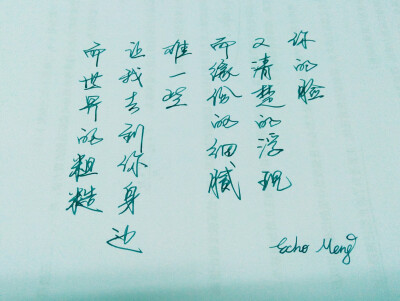 而世界的粗糙
让我去到你身边
难一些
而缘份的细腻
又清楚的浮现
你的脸
Echo Meng